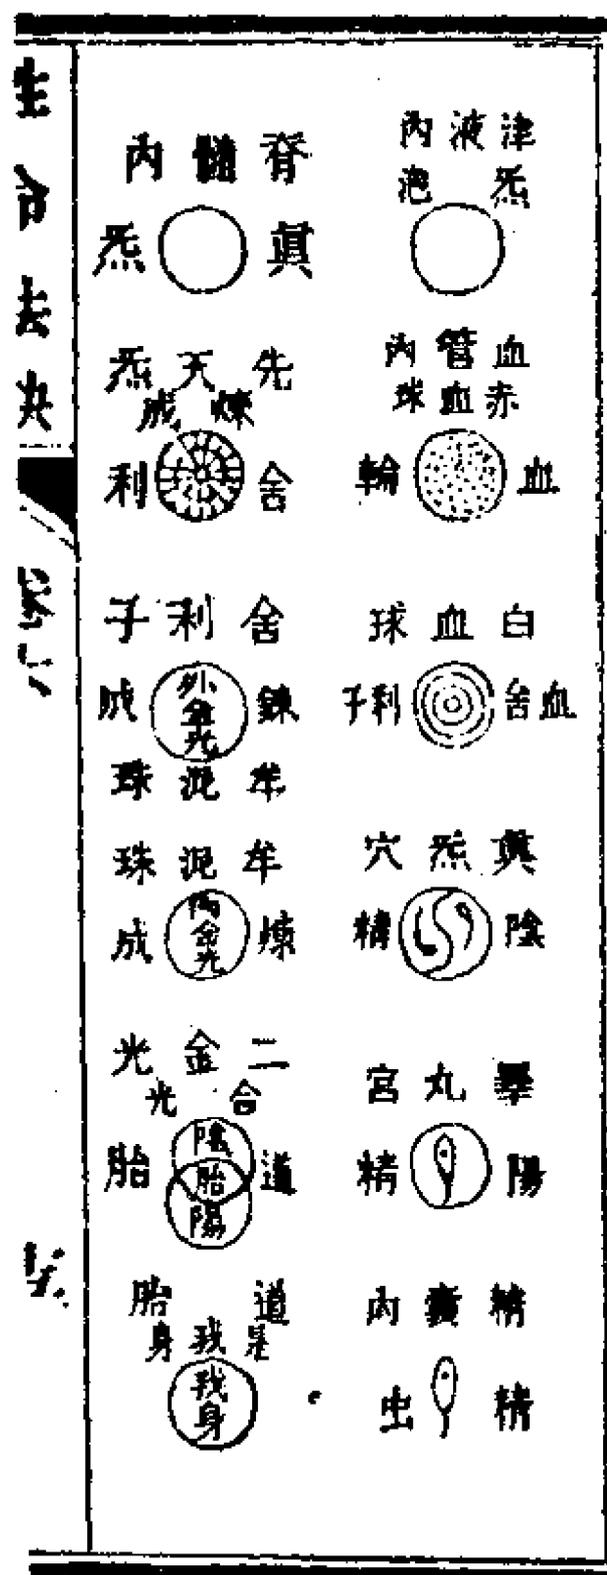 津液內
炁泡
血管內
赤血球
血輪
白血球
血舍利子
眞炁穴
陰精
睪丸宮
陽精
精囊內
精虫
脊髓內
眞炁
先天炁
煉成
舍利
舍利子
鍊成
外金光
牟泥珠
牟泥珠
煉成
內金光
二金光
合光
道胎
陰
胎
陽
道胎
是我身
我身